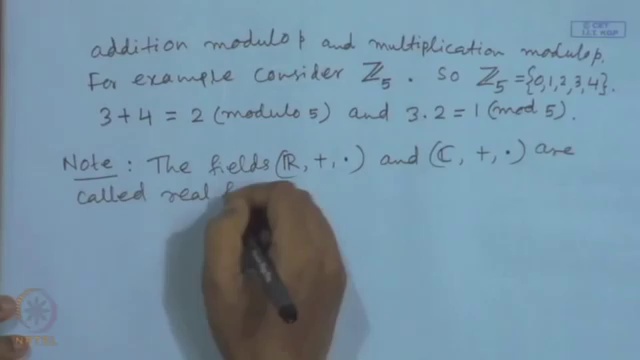 © CET
I.I.T. KGP
addition modulo p and multiplication modulo p.
For example consider ℤ₅. So ℤ₅ = {0,1,2,3,4}.
3+4 = 2 (modulo 5) and 3.2 = 1 (mod 5).
Note: The fields (ℝ, +, ·) and (ℂ, +, ·) are
called real
NPTEL